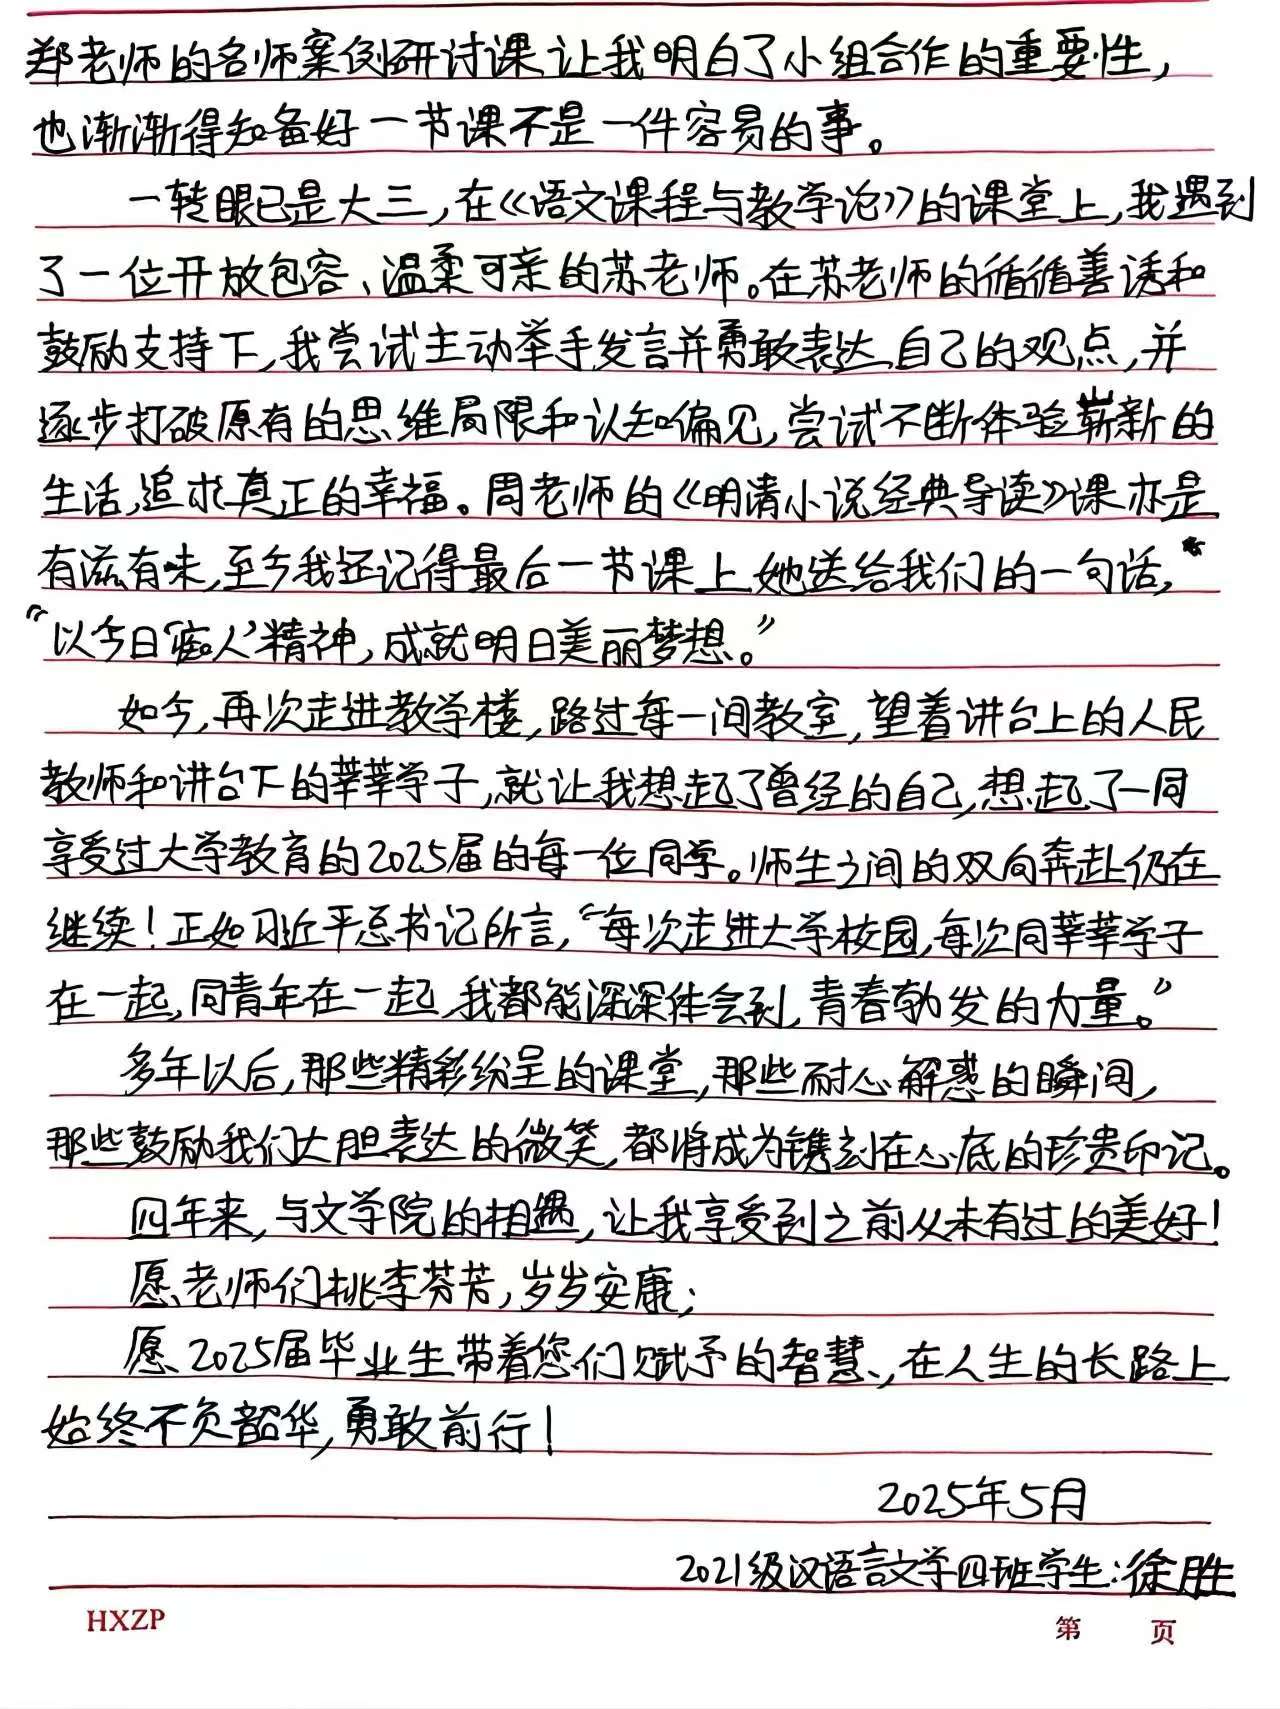 郑老师的名师案例研讨课,让我明白了小组合作的重要性,
也渐渐得知备好一节课不是一件容易的事。
一转眼已是大三,在《语文课程与教学论》的课堂上,我遇到
了一位开放包容、温柔可亲的苏老师。在苏老师的循循善诱和
鼓励支持下,我尝试主动举手发言并勇敢表达自己的观点,并
逐步打破原有的思维局限和认知偏见,尝试不断体验崭新的
生活,追求真正的幸福。周老师的《明清小说经典导读》课亦是
有滋有味,至今我还记得最后一节课上她送给我们的一句话,
“以今日‘痴人’精神,成就明日美丽梦想。”
如今,再次走进教学楼,路过每一间教室,望着讲台上的人民
教师和讲台下的莘莘学子,就让我想起了曾经的自己,想起了一同
享受过大学教育的2025届的每一位同学。师生之间的双向奔赴仍在
继续!正如习近平总书记所言,“每次走进大学校园,每次同莘莘学子
在一起,同青年在一起,我都能深深体会到,青春勃发的力量。”
多年以后,那些精彩纷呈的课堂,那些耐心解惑的瞬间,
那些鼓励我们大胆表达的微笑,都将成为镌刻在心底的珍贵印记。
四年来,与文学院的相遇,让我享受到之前从未有过的美好!
愿老师们桃李芬芳,岁岁安康;
愿2025届毕业生带着您们赋予的智慧,在人生的长路上
始终不负韶华,勇敢前行!
2025年5月
2021级汉语言文学四班学生:徐胜
HXZP 第 页